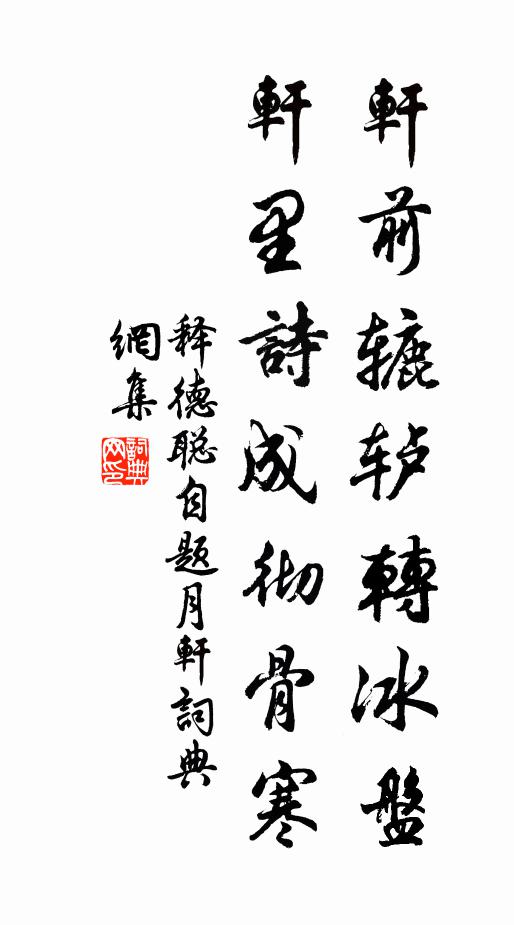 軒前辘轳轉冰盤
軒里詩成彻骨寒
释德聪自题月軒詞典
網集
詞典网印